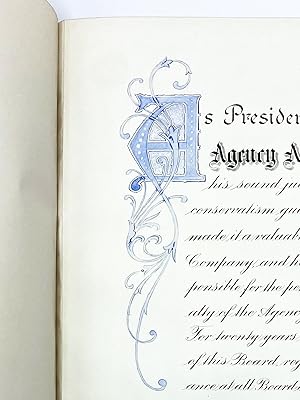 As Presiden
Agency A
his sound ju
conservatism gu
made it a valuabl
Company, and h
ponsible for the po
alty of the Agency
For twenty years
of this Board, reg
ance at all Board